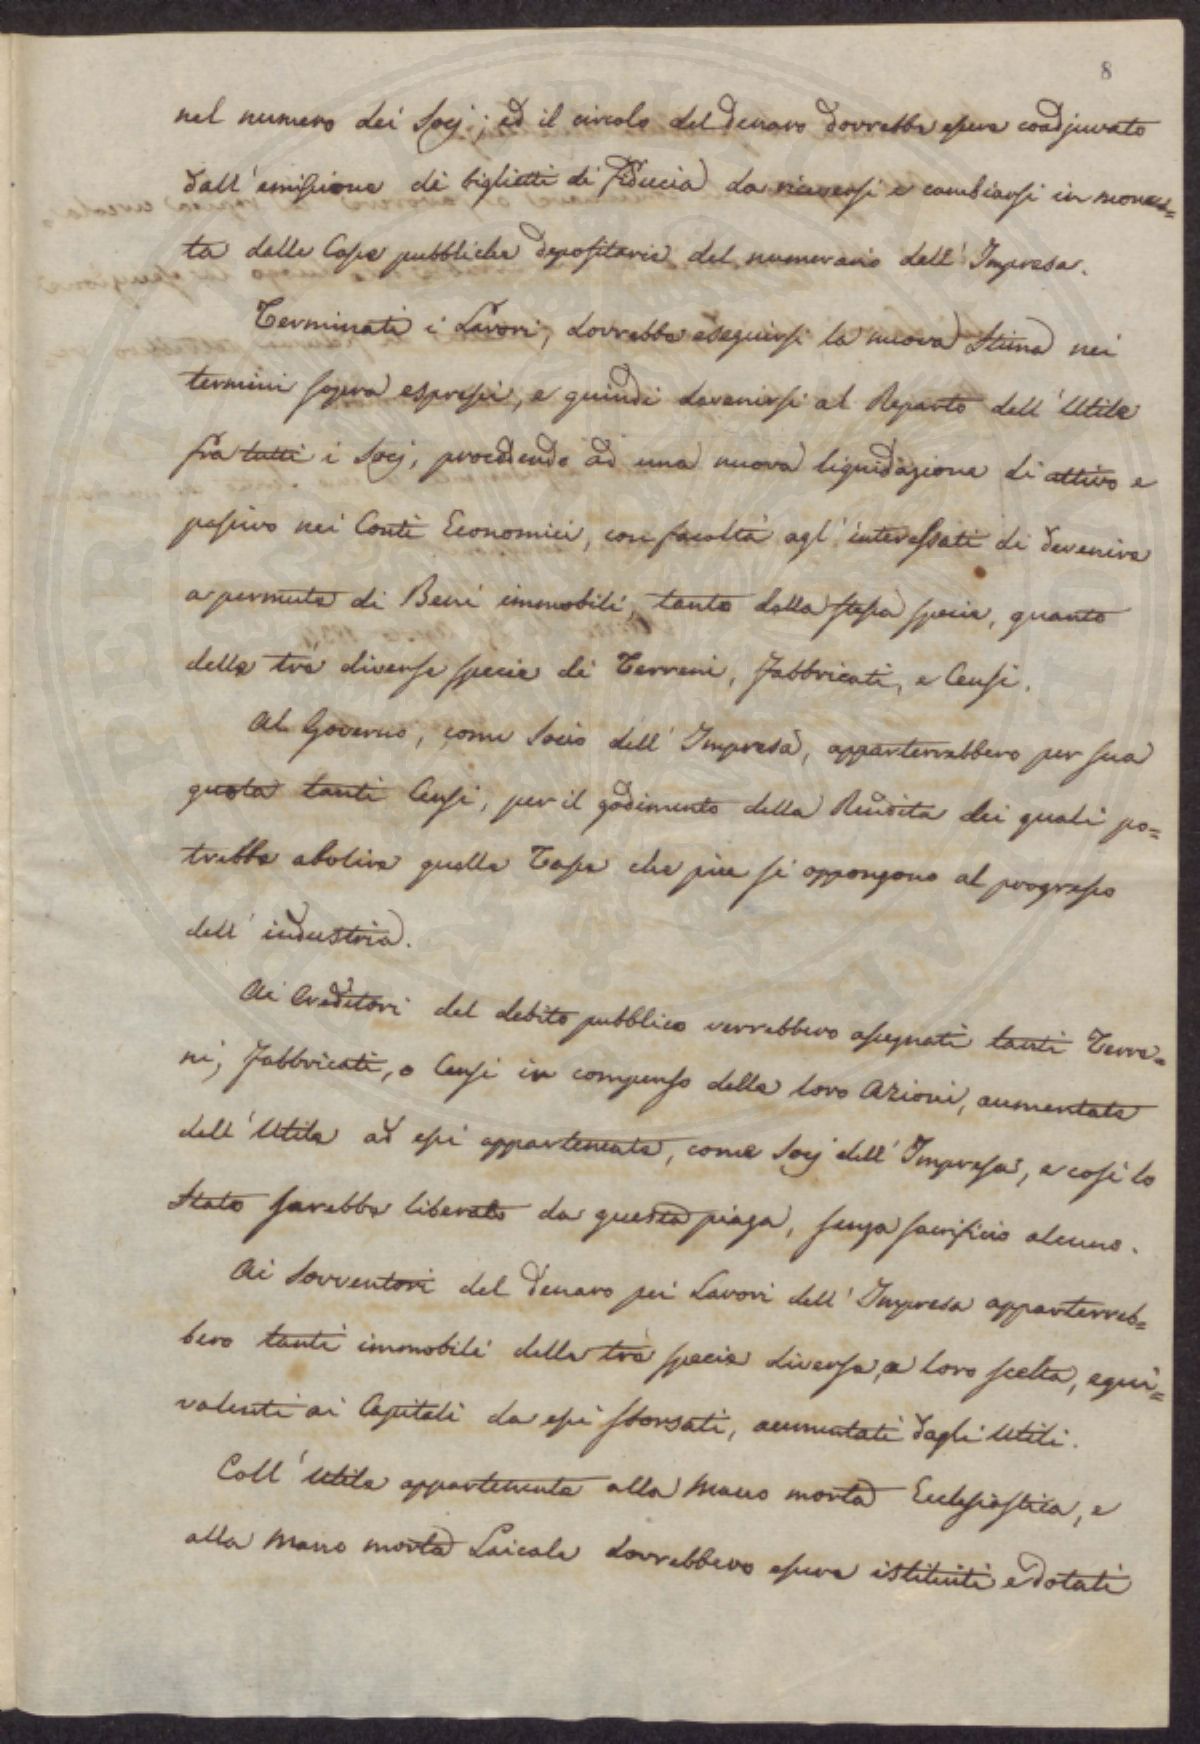 8
nel numero dei Socj; ed il circolo del denaro dovrebbe essere coadjuvato
dall'emissione di biglietti di fiducia da riceversi e cambiarsi in mone=
ta dalle Casse pubbliche depositarie del numerario dell'Impresa.
Terminati i Lavori, dovrebbe eseguirsi la nuova Stima nei
termini sopra espressi, e quindi devenirsi al Reparto dell'Utile
fra tutti i Socj, procedendo ad una nuova liquidazione di attivo e
passivo nei Conti Economici, con facoltà agl'interessati di devenire
a permute di Beni immobili, tanto della stessa specie, quanto
delle trè diverse specie di Terreni, Fabbricati, e Censi.
Al Governo, come Socio dell'Impresa, apparterrebbero per sua
quota tanti Censi, per il godimento della Rendita dei quali po=
trebbe abolire quelle Tasse che più si oppongono al progresso
dell'industria.
Ai Creditori del debito pubblico verrebbero assegnati tanti Terre=
ni, Fabbricati, o Censi in compenso delle loro Azioni, aumentate
dell'Utile ad essi appartenente, come Socj dell'Impresa, e così lo
Stato sarebbe liberato da questa piaga, senza sacrificio alcuno.
Ai Sovventori del denaro pei Lavori dell'Impresa apparterreb=
bero tanti immobili delle trè specie diverse, a loro scelta, equi=
valenti ai Capitali da essi sborsati, aumentati dagli Utili.
Coll'Utile appartenente alla Mano morta Ecclesiastica, e
alla Mano morta Laicale dovrebbero essere istituiti e dotati